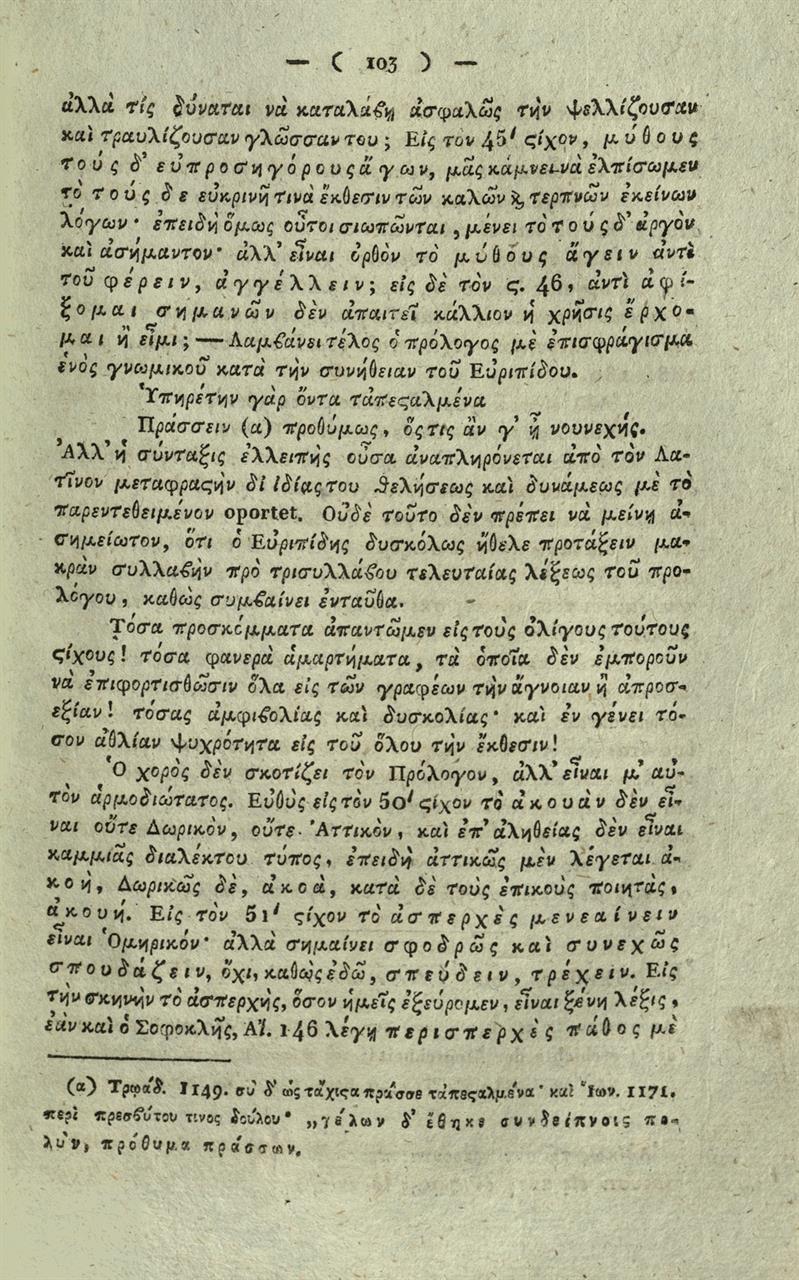 — ( 103 ) —
ἀλλὰ τίς δύναται νὰ καταλάβῃ ἀσφαλῶς τὴν ψελλίζουσαν
καὶ τραυλίζουσαν γλῶσσαν του; Εἰς τὸν 45' ϛίχον, μύθους
τοὺς δ' εὐπροσηγόρους ἄγων, μᾶς κάμνει νὰ ἐλπίσωμεν
τὸ τοὺς δὲ εὐκρινῆ τινὰ ἔκθεσιν τῶν καλῶν ϗ τερπνῶν ἐκείνων
λόγων· ἐπειδὴ ὅμως οὗτοι σιωπῶνται, μένει τὸ τοὺς δ' ἀργὸν
καὶ ἀσήμαντον· ἀλλ' εἶναι ὀρθὸν τὸ μύθους ἄγειν ἀντὶ
τοῦ φέρειν, ἀγγέλλειν; εἰς δὲ τὸν ϛ. 46, ἀντὶ ἀφί-
ξομαι σημανῶν δὲν ἀπαιτεῖ κάλλιον ἡ χρῆσις ἔρχο-
μαι ἢ εἶμι; — Λαμβάνει τέλος ὁ πρόλογος μὲ ἐπισφράγισμα
ἑνὸς γνωμικοῦ κατὰ τὴν συνήθειαν τοῦ Εὐριπίδου.
Ὑπηρέτην γὰρ ὄντα τἀπεϛαλμένα
Πράσσειν (α) προθύμως, ὅςτις ἂν γ' ᾖ νουνεχής.
Ἀλλ' ἡ σύνταξις ἐλλειπὴς οὖσα ἀναπληρόνεται ἀπὸ τὸν Λα-
τῖνον μεταφραϛὴν δι ἰδίας του θελήσεως καὶ δυνάμεως μὲ τὸ
παρεντεθειμένον oportet. Οὐδὲ τοῦτο δὲν πρέπει νὰ μείνῃ ἀ-
σημείωτον, ὅτι ὁ Εὐριπίδης δυσκόλως ἤθελε προτάξειν μα-
κρὰν συλλαβὴν πρὸ τρισυλλάβου τελευταίας λέξεως τοῦ προ-
λόγου, καθὼς συμβαίνει ἐνταῦθα.
Τόσα προσκόμματα ἀπαντῶμεν εἰς τοὺς ὀλίγους τούτους
ϛίχους! τόσα φανερὰ ἁμαρτήματα, τὰ ὁποῖα δὲν ἐμποροῦν
νὰ ἐπιφορτισθῶσιν ὅλα εἰς τῶν γραφέων τὴν ἄγνοιαν ἢ ἀπροσ-
εξίαν! τόσας ἀμφιβολίας καὶ δυσκολίας· καὶ ἐν γένει τό-
σον ἀθλίαν ψυχρότητα εἰς τοῦ ὅλου τὴν ἔκθεσιν!
Ὁ χορὸς δὲν σκοτίζει τὸν Πρόλογον, ἀλλ' εἶναι μ' αὐ-
τὸν ἁρμοδιώτατος. Εὐθὺς εἰς τὸν 50' ϛίχον τὸ ἀκουὰν δὲν εἶ-
ναι οὔτε Δωρικὸν, οὔτε Ἀττικὸν, καὶ ἐπ' ἀληθείας δὲν εἶναι
καμμιᾶς διαλέκτου τύπος, ἐπειδὴ ἀττικῶς μὲν λέγεται ἀ-
κοὴ, Δωρικῶς δὲ, ἀκοὰ, κατὰ δὲ τοὺς ἐπικοὺς ποιητὰς,
ἀκουή. Εἰς τὸν 51' ϛίχον τὸ ἀσπερχὲς μενεαίνειν
εἶναι Ὁμηρικόν· ἀλλὰ σημαίνει σφοδρῶς καὶ συνεχῶς
σπουδάζειν, ὄχι, καθὼς ἐδῶ, σπεύδειν, τρέχειν. Εἰς
τὴν σκηνὴν τὸ ἀσπερχὴς, ὅσον ἡμεῖς ἐξεύρομεν, εἶναι ξένη λέξις,
ἐὰν καὶ ὁ Σοφοκλῆς, Αἴ. 146 λέγῃ περισπερχὲς πάθος μὲ
(α) Τρῳάδ. 1149. σὺ δ' ὡς τάχιϛα πράσσε τἀπεϛαλμένα· καὶ Ἴων. 1171.
περὶ πρεσβύτου τινος δούλου· „γέλων δ' ἔθηκε συνδείπνοις πο-
λὺν, πρόθυμα πράσσων.